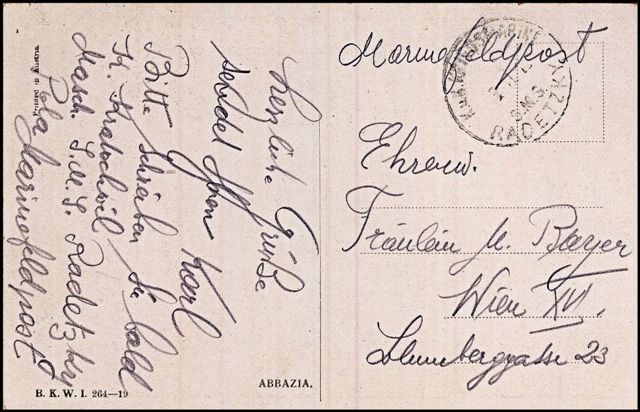 Herzliche Grüße
sendet Ihnen Karl
Bitte schreiben Sie bald
K. Kratochwil
Masch. S.M.S. Radetzky
Pola Marinefeldpost
Printed in Austria
B. K. W. I. 264—19
ABBAZIA.
Marinefeldpost
K.u.K. KRIEGSMARINE
S.M.S.
RADETZKY
Ehrenw.
Fräulein M. Bayer
Wien XVI.
23